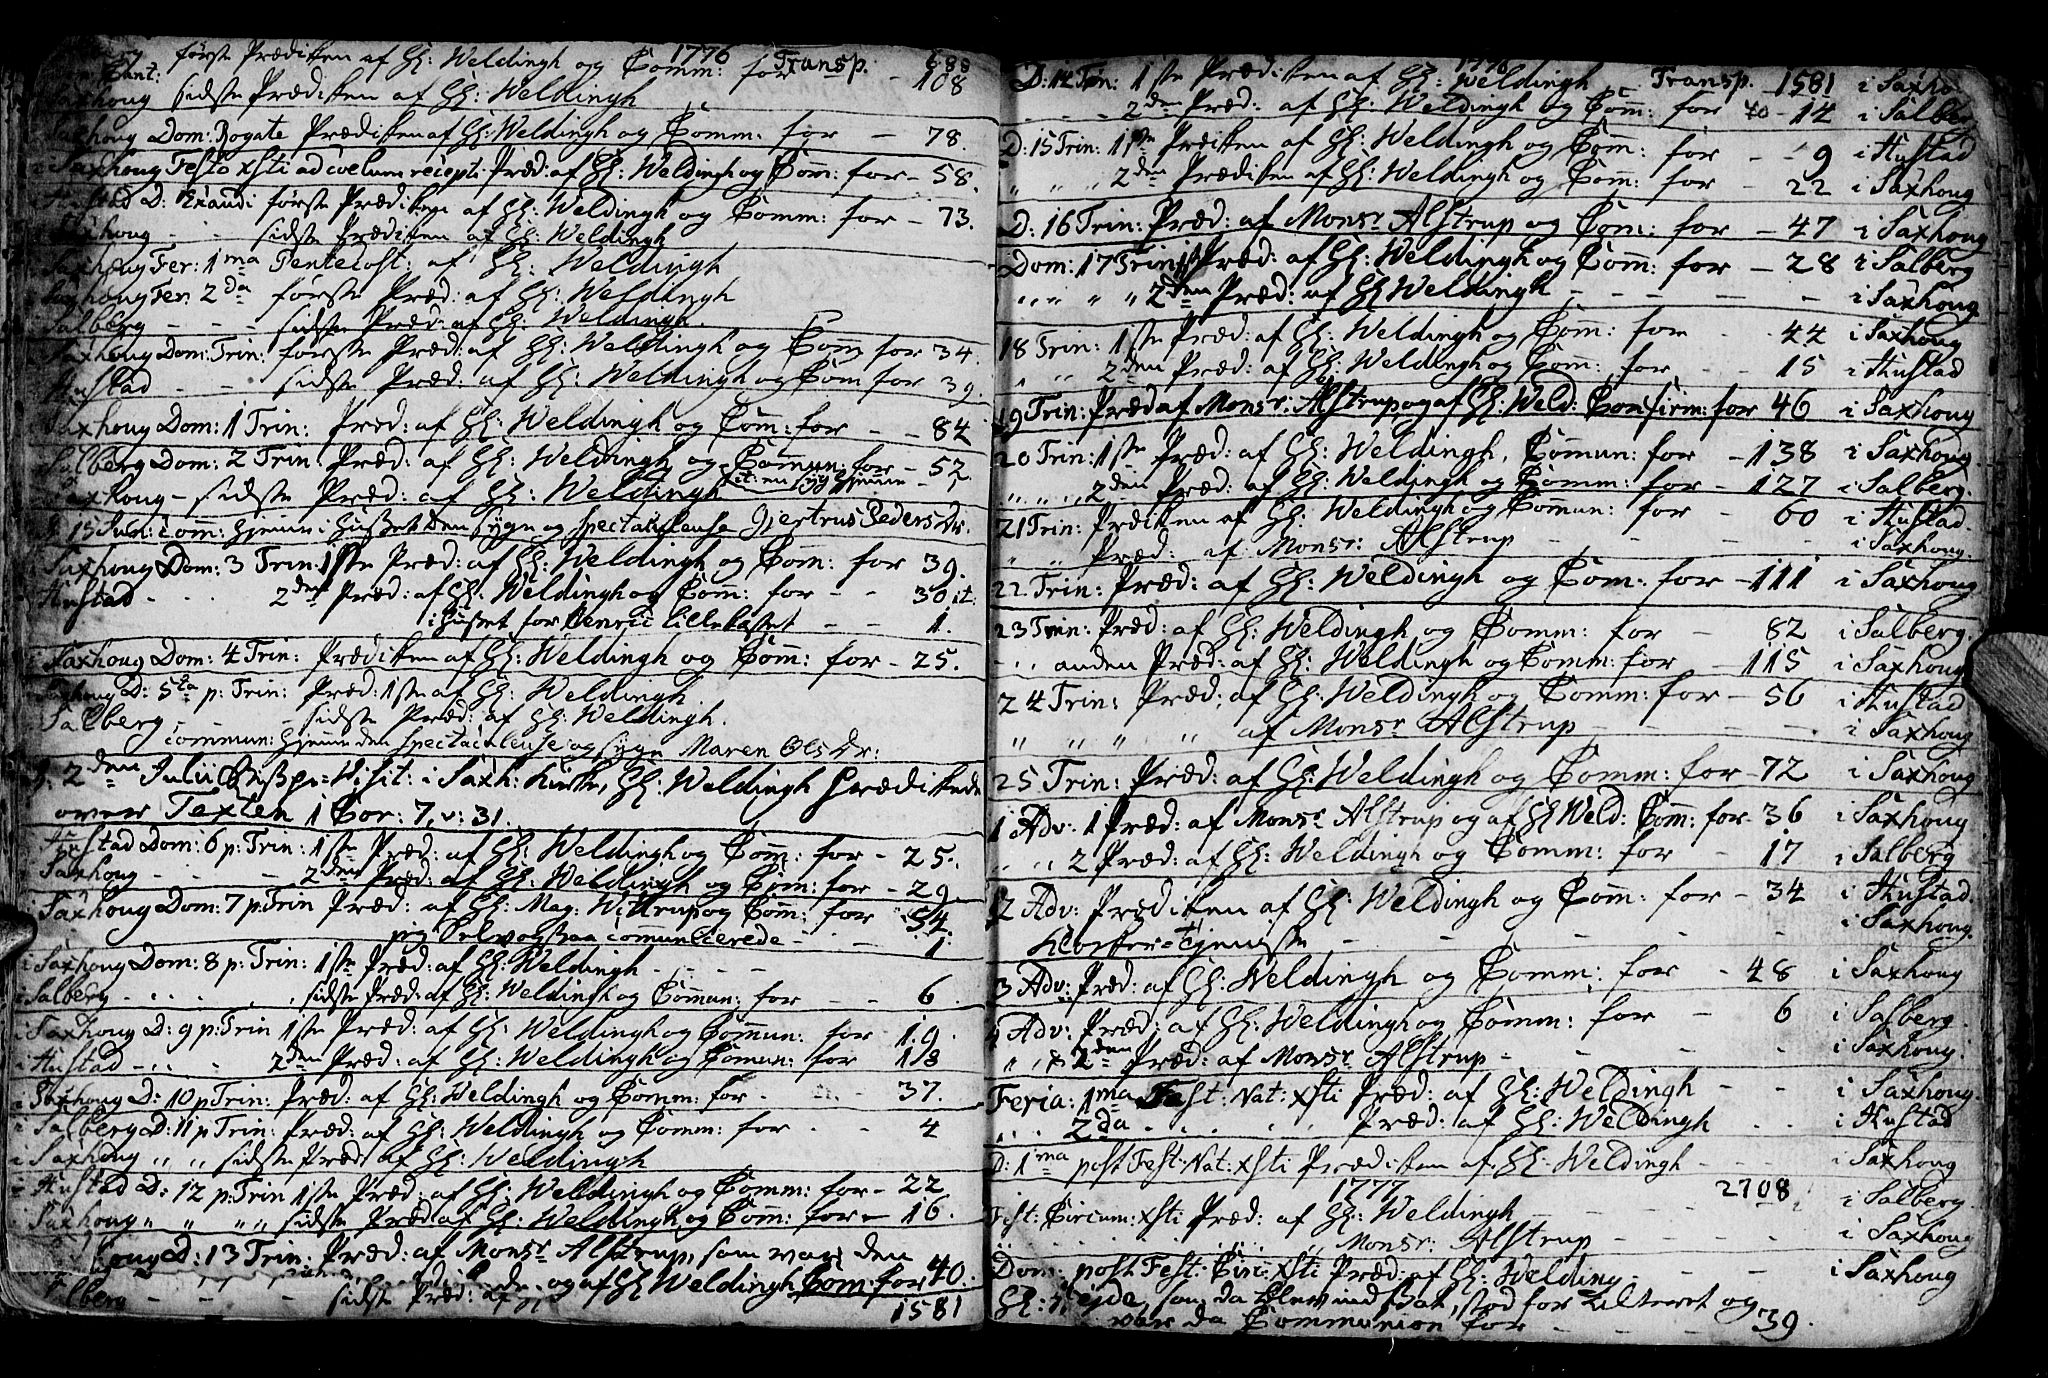 1776
første Prædiken af Hl: Weldingh og Comm: for Transp. 688
Cant: 108
Saxhoug sidste Prædiken af Hl: Weldingh
Saxhoug Dom: Rogate Prædiken af Hl: Weldingh og Comm: for - 78.
i Saxhoug Festo xsti ad coelum recepti Præd: af Hl: Weldingh og Com: for - 58.
Hustad D: Exaudi første Prædiken af Hl: Weldingh og Comm: for - 73.
Saxhoug - - sidste Prædiken af Hl: Weldingh
Saxhoug Fer: 1ma Pentecost: af Hl: Weldingh
Saxhoug Fer: 2da første Præd: af Hl: Weldingh
Salberg - - - sidste Præd: af Hl: Weldingh.
Saxhoug Dom: Trin: første Præd: af Hl: Weldingh og Com for 34.
Hustad - - sidste Præd: af Hl: Weldingh og Com for 39.
Saxhoug Dom: 1 Trin: Præd: af Hl: Weldingh og Com: for - - 84
i Salberg Dom: 2 Trin: Præd: af Hl: Weldingh og Commun: for - 52
Saxhoug - sidste Præd: af Hl: Weldingh it: en syg hjemme - 1
15 Jun: comm: hjemme i Husset den syge og spectaculeuse Giertrus Peders Dr.
Saxhoug Dom: 3 Trin: 1ste Præd: af Hl: Weldingh og Com: for 39.
Hustad - - - 2den Præd: af Hl: Weldingh og Com: for - - 30 it:
i Husset for Henric Lillebasset - - 1.
i Saxhoug Dom: 4 Trin: Prædiken af Hl: Weldingh og Com: for - 25.
Saxhoug D: 5ta p: Trin: Præd: 1ste af Hl: Weldingh
Salberg - - - sidste Præd: af Hl: Weldingh.
commun: hjemme den spectaculeuse og syge Maren Ols Dr:
D. 2den Julii Bispe-Visit: i Saxh: Kirke, Hl: Weldingh Prædikede
over Texten 1 Cor: 7, v: 31.
Hustad Dom: 6 p: Trin: 1ste Præd: af Hl: Weldingh og Com: for - 25.
Saxhoug - - - 2den Præd: af Hl: Weldingh og Com: for - 29.
i Saxhoug Dom: 7 p: Trin Præd: af Hl: Mag: Wittrup og Com: for 54.
jeg Selv ogsaa communicerede - - 1.
i Saxhoug Dom: 8 p: Trin: 1ste Præd: af Hl: Weldingh - - - -
i Salberg - - - - sidste Præd: af Hl: Weldingh og Commun: for - - 6.
i Saxhoug D: 9 p: Trin 1ste Præd: af Hl: Weldingh og Commun: for - 19.
i Hustad - - - 2den Præd: af Hl: Weldingh og Comun: for 18
i Saxhoug D: 10 p Trin: Præd: af Hl: Weldingh og Comm: for - - 37.
i Salberg D: 11 p Trin: Præd: af Hl: Weldingh og Comm: for - - 4
i Saxhoug " " sidste Præd: af Hl: Weldingh
i Hustad D: 12 p: Trin 1ste Præd: af Hl: Weldingh og Comm: for - 22
i Saxhoug " " " " sidste Præd af Hl: Weldingh og Com: for - 16.
houg D: 13 Trin: Præd: af Monsr Alstrup, som war den
og af Hl Weldingh Com: for 40.
Salberg - - - sidste Præd: af
1581
1776
D: 14 Trin: 1ste Prædiken af Hl: Weldingh Transp. 1581 i Saxho
- - - 2den Præd: af Hl: Weldingh og Com: for - 14 i Salberg
D: 15 Trin: 1ste Prædiken af Hl: Weldingh og Com: for - - 9 i Hustad
" " " 2den Prædiken af Hl: Weldingh og Com: for - 22 i Saxhoug
D: 16 Trin: Præd: af Monsr Alstrup og Com: for - 47 i Saxhoug
Dom: 17 Trin: 1ste Præd: af Hl: Weldingh og Com: for - 28 i Salberg
" " " " 2den Præd: af Hl Weldingh - - - - - i Saxhoug
18 Trin: 1ste Præd: af Hl: Weldingh og Com: for - - 44 i Saxhoug
" " 2den Præd: af Hl: Weldingh og Com: for - - 15 i Hustad
19 Trin: Præd af Monsr: Alstrup og af Hl: Weld: Confirm: for 46 i Saxhoug
20 Trin: 1ste Præd: af Hl: Weldingh, Commun: for - 138 i Saxhoug
" " " 2den Præd: af Hl: Weldingh og Comm: for - 127 i Salberg.
21 Trin: Prædiken af Hl: Weldingh og Commun: for - 60 i Hustad.
" " Præd: af Monsr: Alstrup - - - - i Saxhoug.
22 Trin: Præd: af Hl: Weldingh og Com: for - 111 i Saxhoug
23 Trin: Præd: af Hl: Weldingh og Comm: for - 82 i Salberg.
- - anden Præd: af Hl: Weldingh og Comm: for - 115 i Saxhoug
24 Trin: Præd: af Hl: Weldingh og Comm: for - 56 i Hustad
" " " " af Monsr Alstrup - - - - i Saxhoug
25 Trin: Præd: af Hl: Weldingh og Comm: for - 72 i Saxhoug
1 Adv: 1 Præd: af Monsr Alstrup og af Hl Weld: Com: for - 36 i Saxhoug
" " 2 Præd: af Hl: Weldingh og Comm: for - 17 i Salberg
2 Adv: Prædiken af Hl: Weldingh og Com: for - 34 i Hustad.
Kloster-Tjeneste - - - - - i Saxhoug.
3 Adv: Præd: af Hl: Weldingh og Comm: for - 48 i Saxhoug
4 Adv: Præd: af Hl: Weldingh og Comm: for - 6 i Salberg.
" " 2den Præd: af Monsr Alstrup - - - - i Saxhoug.
Feria: 1ma Fest: Nat: xsti Præd: af Hl: Weldingh - - i Saxhoug.
" " 2da - - - - Præd: af Hl: Weldingh - - i Hustad
D: 1ma post Fest: Nat: xsti Prædiken af Hl: Weldingh - - - i Saxhoug
1777 2708
Fest: Circum: xsti Præd: af Hl: Weldingh - - - - i Salberg
" Monsr: Alstrup - - - - i Saxhoug
Dom: post Fest: Circ: xsti Præd: af Hl: Welding - - - - i Saxhoug
Hl: Tejde, som da blev indsat, stod for Alteret og
var da Communion for - - - - 39.